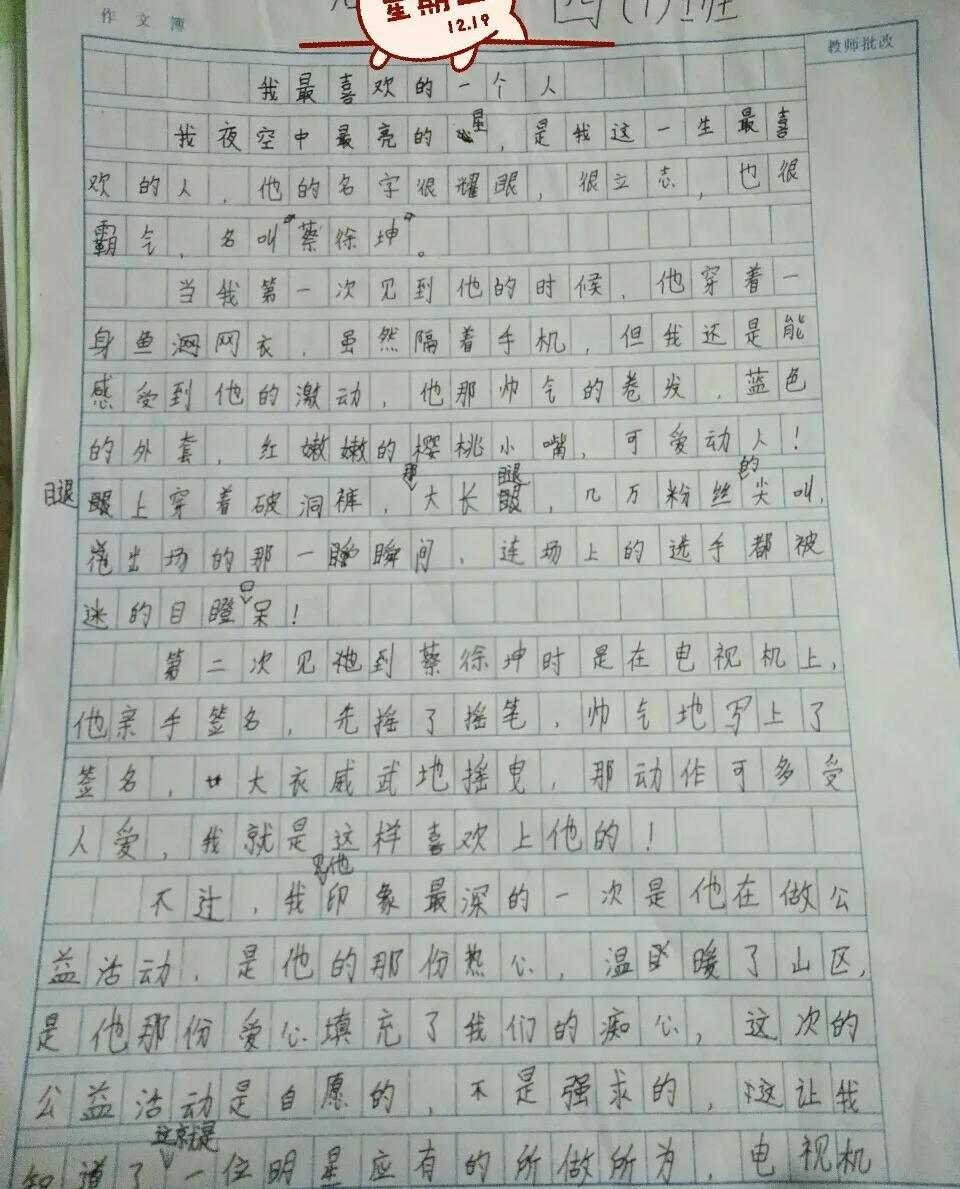 作文簿
星期
12.19
四(1)班
教师批改
我最喜欢的一个人
我夜空中最亮的星，是我这一生最喜
欢的人，他的名字很耀眼，很立志，也很
霸气，名叫“蔡徐坤”。
当我第一次见到他的时候，他穿着一
身鱼网网衣，虽然隔着手机，但我还是能
感受到他的激动，他那帅气的卷发，蓝色
的外套，红嫩嫩的樱桃小嘴，可爱动人！
腿上穿着破洞裤，那大长腿，几万粉丝的尖叫，
出场的那一瞬间，连场上的选手都被
迷的目瞪口呆！
第二次见到蔡徐坤时是在电视机上，
他亲手签名，先摇了摇笔，帅气地写上了
签名，大衣威武地摇曳，那动作可多受
人爱，我就是这样喜欢上他的！
不过，我见他印象最深的一次是他在做公
益活动，是他的那份热心，温暖了山区，
是他那份爱心填充了我们的痴心，这次的
公益活动是自愿的，不是强求的，这让我
知道了这就是一位明星应有的所做所为，电视机